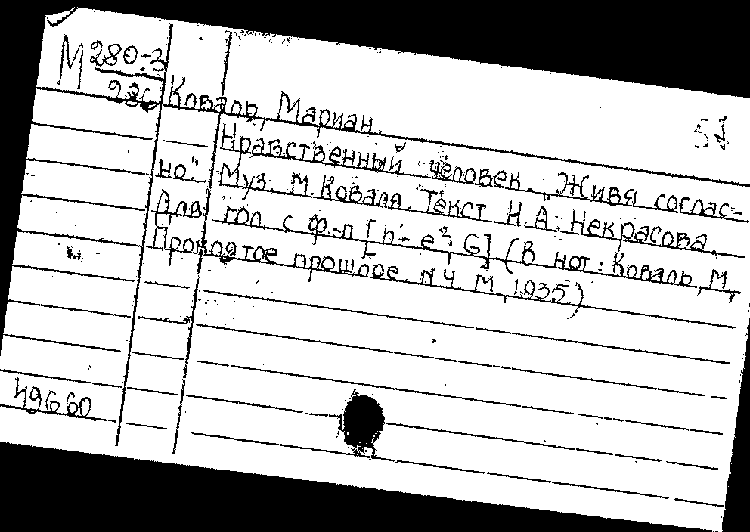 М 280:3
Коваль, Мариан.
Нравственный человек. „Живя соглас-
но". Муз. М. Коваля. Текст Н.А. Некрасова.
Для гол. с ф-п [h - e² G] (В нот: Коваль, М.
Проклятое прошлое. N 4 М., 1935)
49660